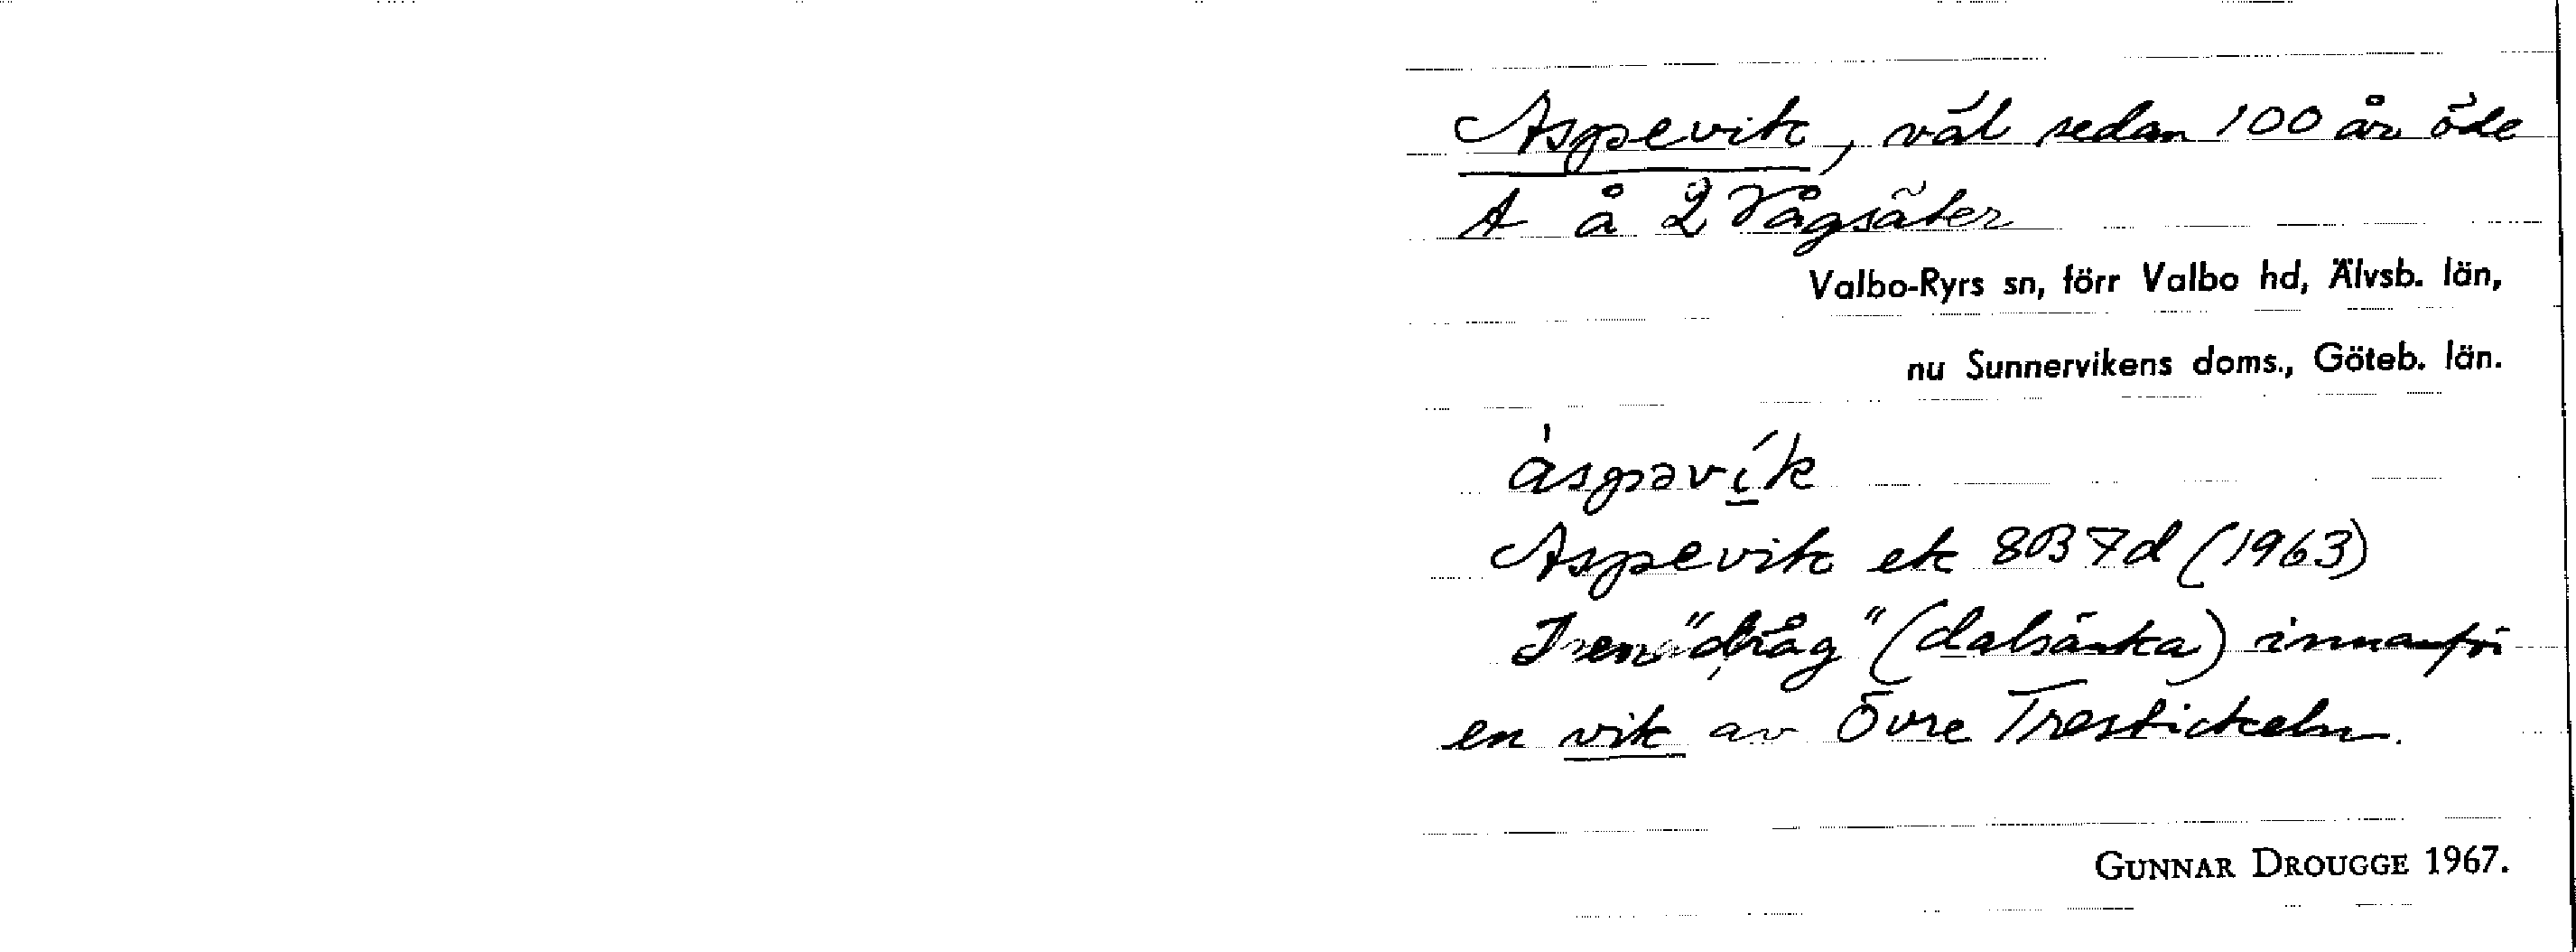 Aspevik, väl sedan 100 år öde
A å 2 Vågsäter
Valbo-Ryrs sn, förr Valbo hd, Älvsb. län,
nu Sunnervikens doms., Göteb. län.
àspəvík
Aspevik ek 8B7d (1963)
"dråg" (dalsänka) innanför
en vik av Övre Trestickeln.
GUNNAR DROUGGE 1967.